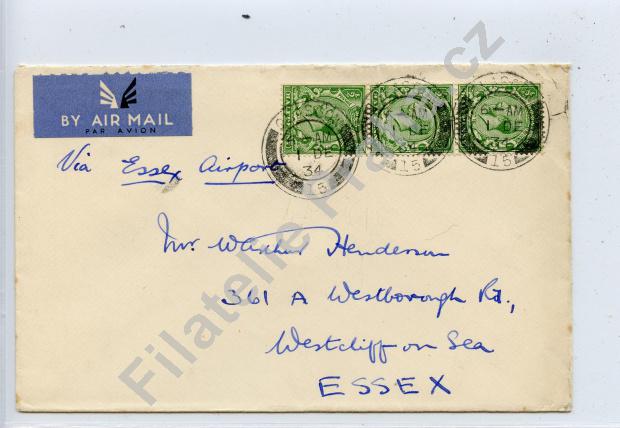 BY AIR MAIL
PAR AVION
Via Essex Airport
1 DE
34
15
15
15
Mr. Henderson
361 A Westborough Rd.,
Westcliff-on Sea
ESSEX
Filatelie Praha cz